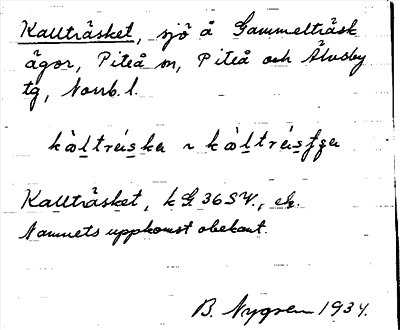 Kallträsket, sjö å Gammelträsk
ägor, Piteå sn, Piteå och Älvsby
tg, Norrb. l.
kàltrẹska ~ kàltrẹsʃʒa
Kallträsket, kG 36SV., ek.
Namnets uppkomst obekant.
B. Nygren 1934.